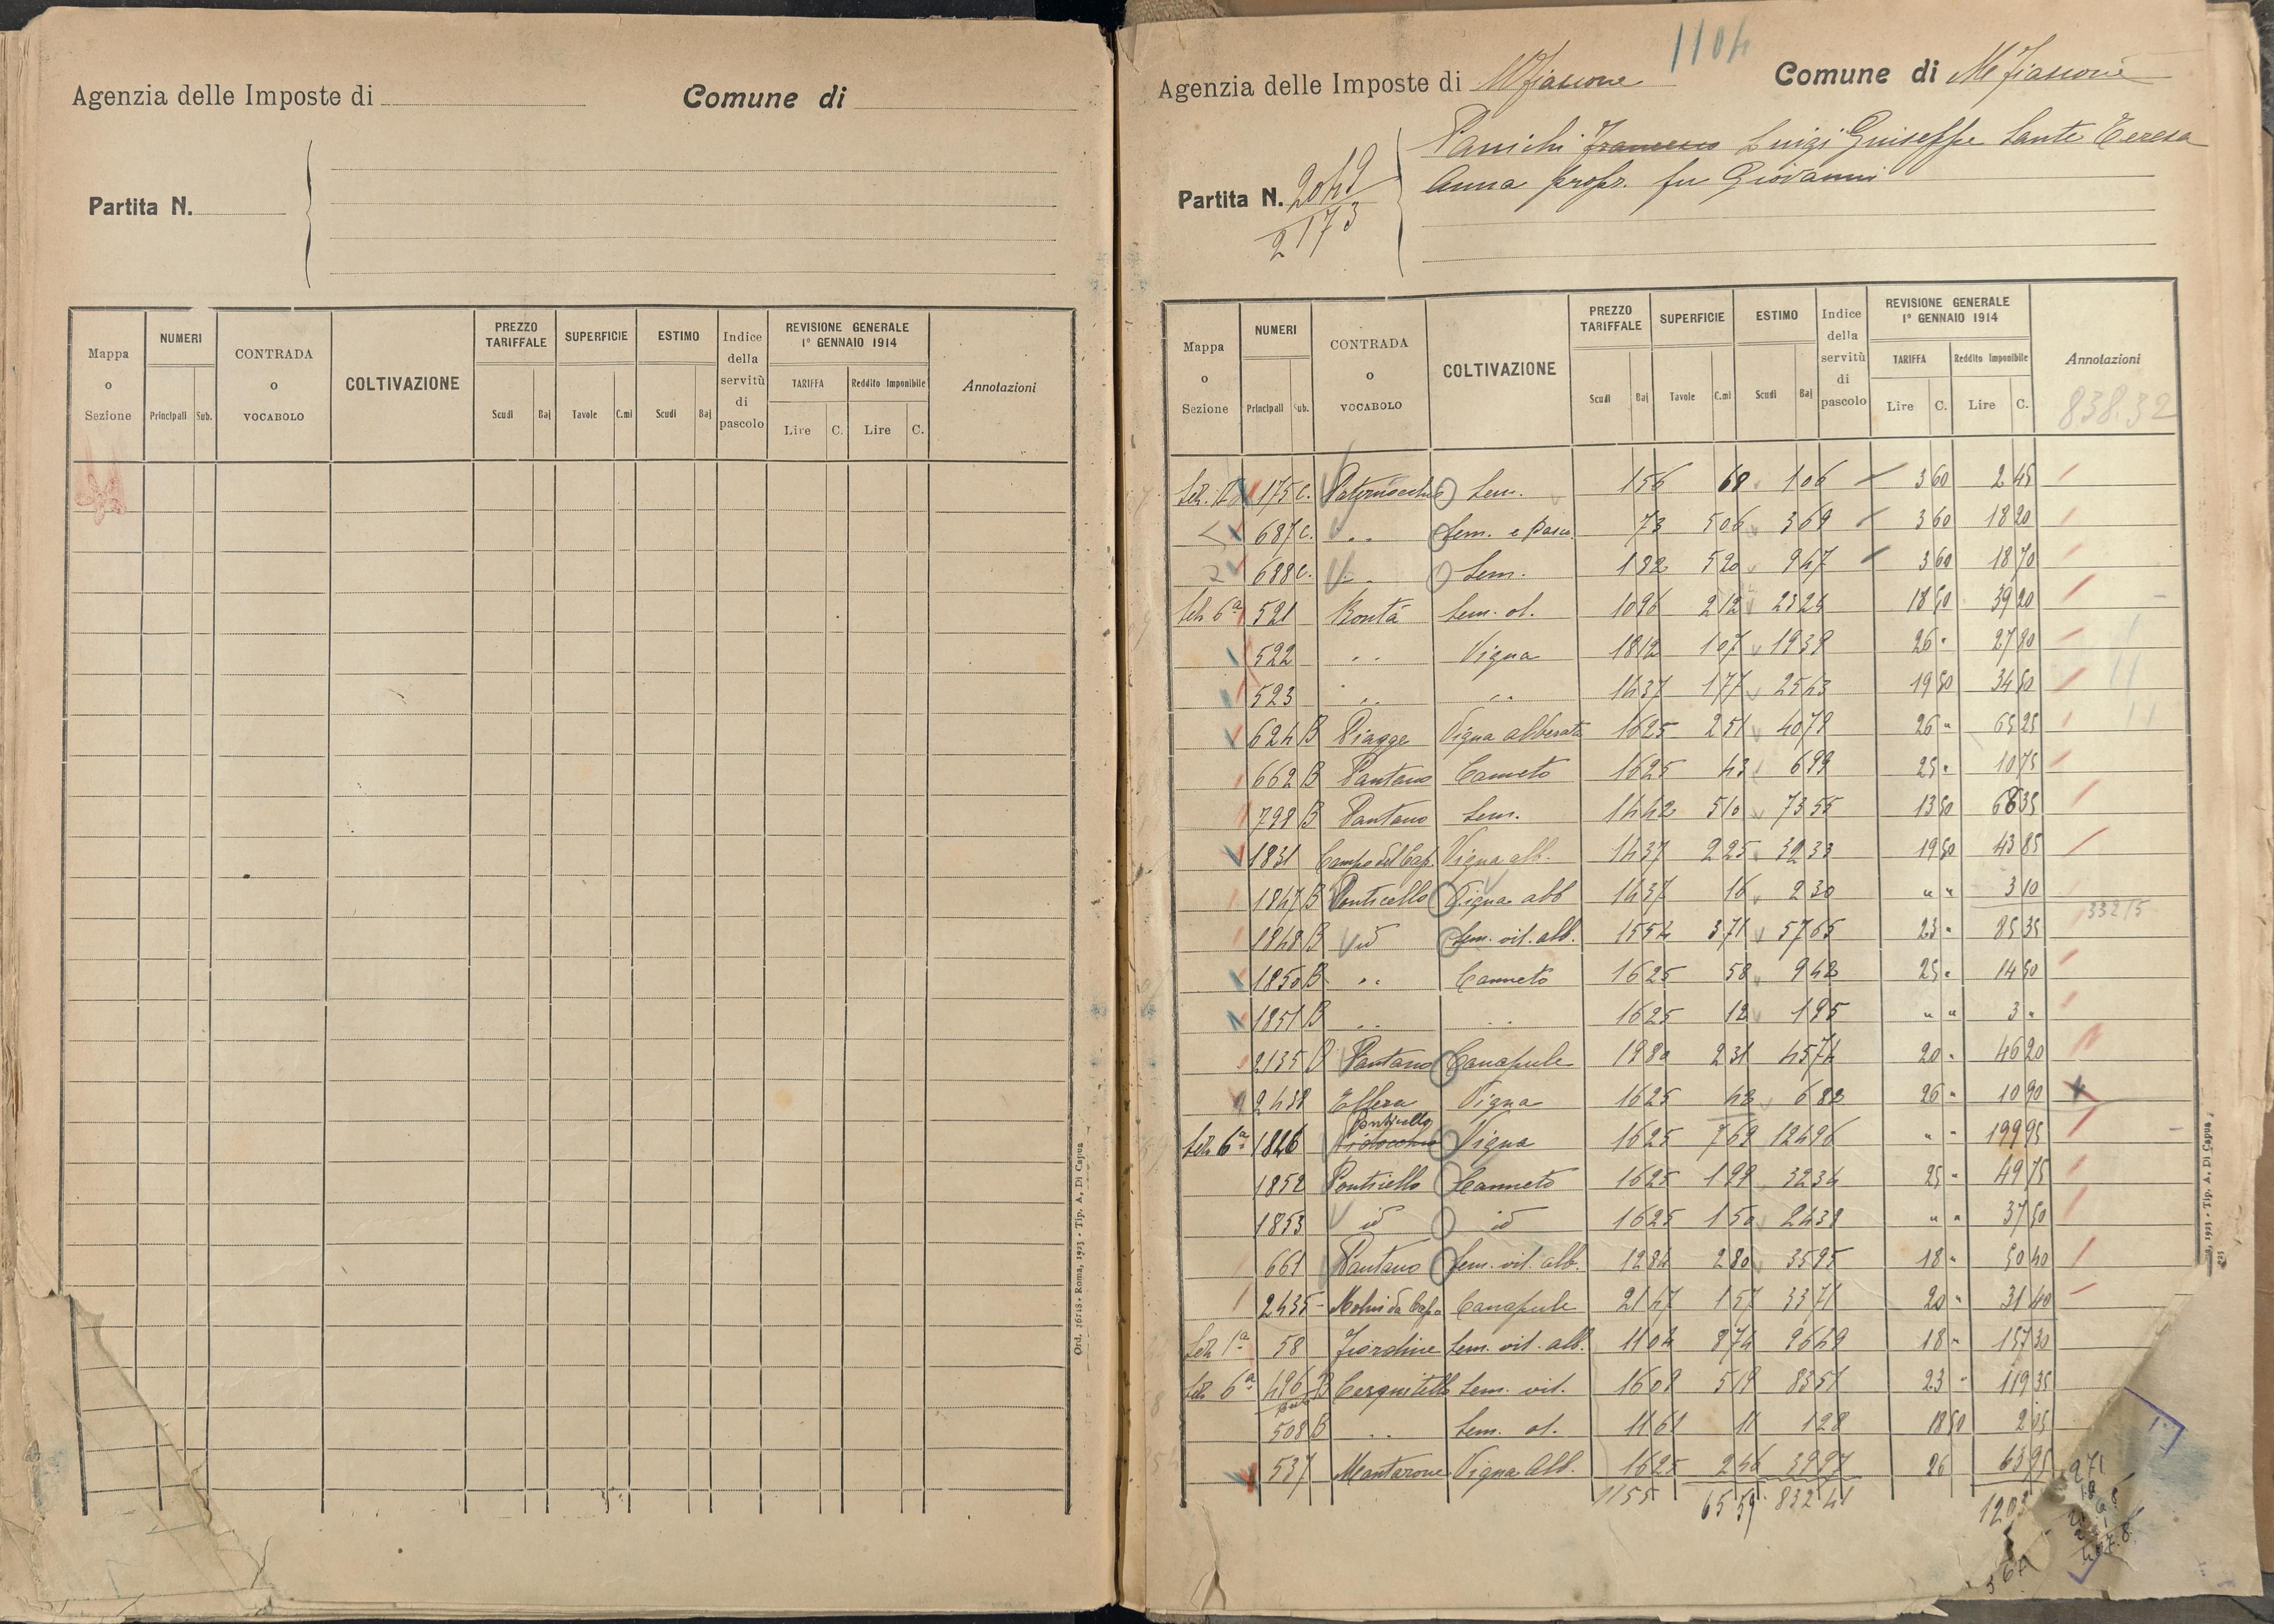 Agenzia delle Imposte di Comune di
Partita N.
Mappa o Sezione NUMERI Principali Sub. CONTRADA o VOCABOLO COLTIVAZIONE PREZZO TARIFFALE Scudi Baj SUPERFICIE Tavole C.mi ESTIMO Scudi Baj Indice della servitù di pascolo REVISIONE GENERALE 1° GENNAIO 1914 TARIFFA Lire C. Reddito Imponibile Lire C. Annotazioni
Ord. 16118 - Roma, 1923 - Tip. A. Di Capua
1104
Agenzia delle Imposte di M Fiascone Comune di M Fiascone
Partita N. 2049
2173
Panichi Francesco Luigi Giuseffe Sante Teresa
Anna propr. fu Giovanni
Mappa o Sezione NUMERI Principali Sub. CONTRADA o VOCABOLO COLTIVAZIONE PREZZO TARIFFALE Scudi Baj SUPERFICIE Tavole C.mi ESTIMO Scudi Baj Indice della servitù di pascolo REVISIONE GENERALE 1° GENNAIO 1914 TARIFFA Lire C. Reddito Imponibile Lire C. Annotazioni
838.32
175 C. Sem. 156 68 106 3 60 2 45
687 C. " Sem. e Pasco. 73 506 369 3 60 18 20
688 C. " Sem. 182 520 947 3 60 18 70
Sez 6ª 521 Sem. ol. 1096 212 2324 18 50 39 20
522 " Vigna 1812 107 1939 26 " 27 80
523 " " 1437 177 2543 19 50 34 50
624 B Piagge Vigna alberata 1625 251 4079 26 " 65 25
662 B Pantano Canneto 1625 43 699 25 " 10 75
798 B Pantano Sem. 1442 510 7355 13 50 68 35
1831 Campo del Cap. Vigna alb. 1437 225 3233 19 50 43 85
1847 B Ponticello Vigna alb 1437 16 230 " " 3 10
33215
1848 B id Sem. vit. alb. 1554 371 5765 23 " 85 35
1850 B " Canneto 1625 58 942 25 " 14 50
1851 B " " 1625 12 195 " " 3 "
2135 Pantano Canapule 1980 231 4574 20 " 46 20
2438 Vigna 1625 42 682 26 " 10 90
Ponticello
Sez 6ª 1846 Vigna 1625 769 12496 " " 199 95
1852 Ponticello Canneto 1625 199 3234 25 " 49 75
1853 id id 1625 150 2438 " " 37 50
661 Pantano Sem. vit. alb. 1284 280 3595 18 " 50 40
2435 Canapule 2147 157 3371 20 " 31 40
Sez 1ª 58 Fiordine Sem. vit. alb. 1104 874 9649 18 " 157 30
Sez 6ª 496 B Cerquitello Sem. vit. 1608 519 8351 23 " 119 35
508 B " Sem. ol. 1161 11 128 18 50 2 05
537 Mantarone Vigna Alb. 1625 246 3997 26 63 95
1155 65 59 832 41 1203
Tip. A. Di Capua